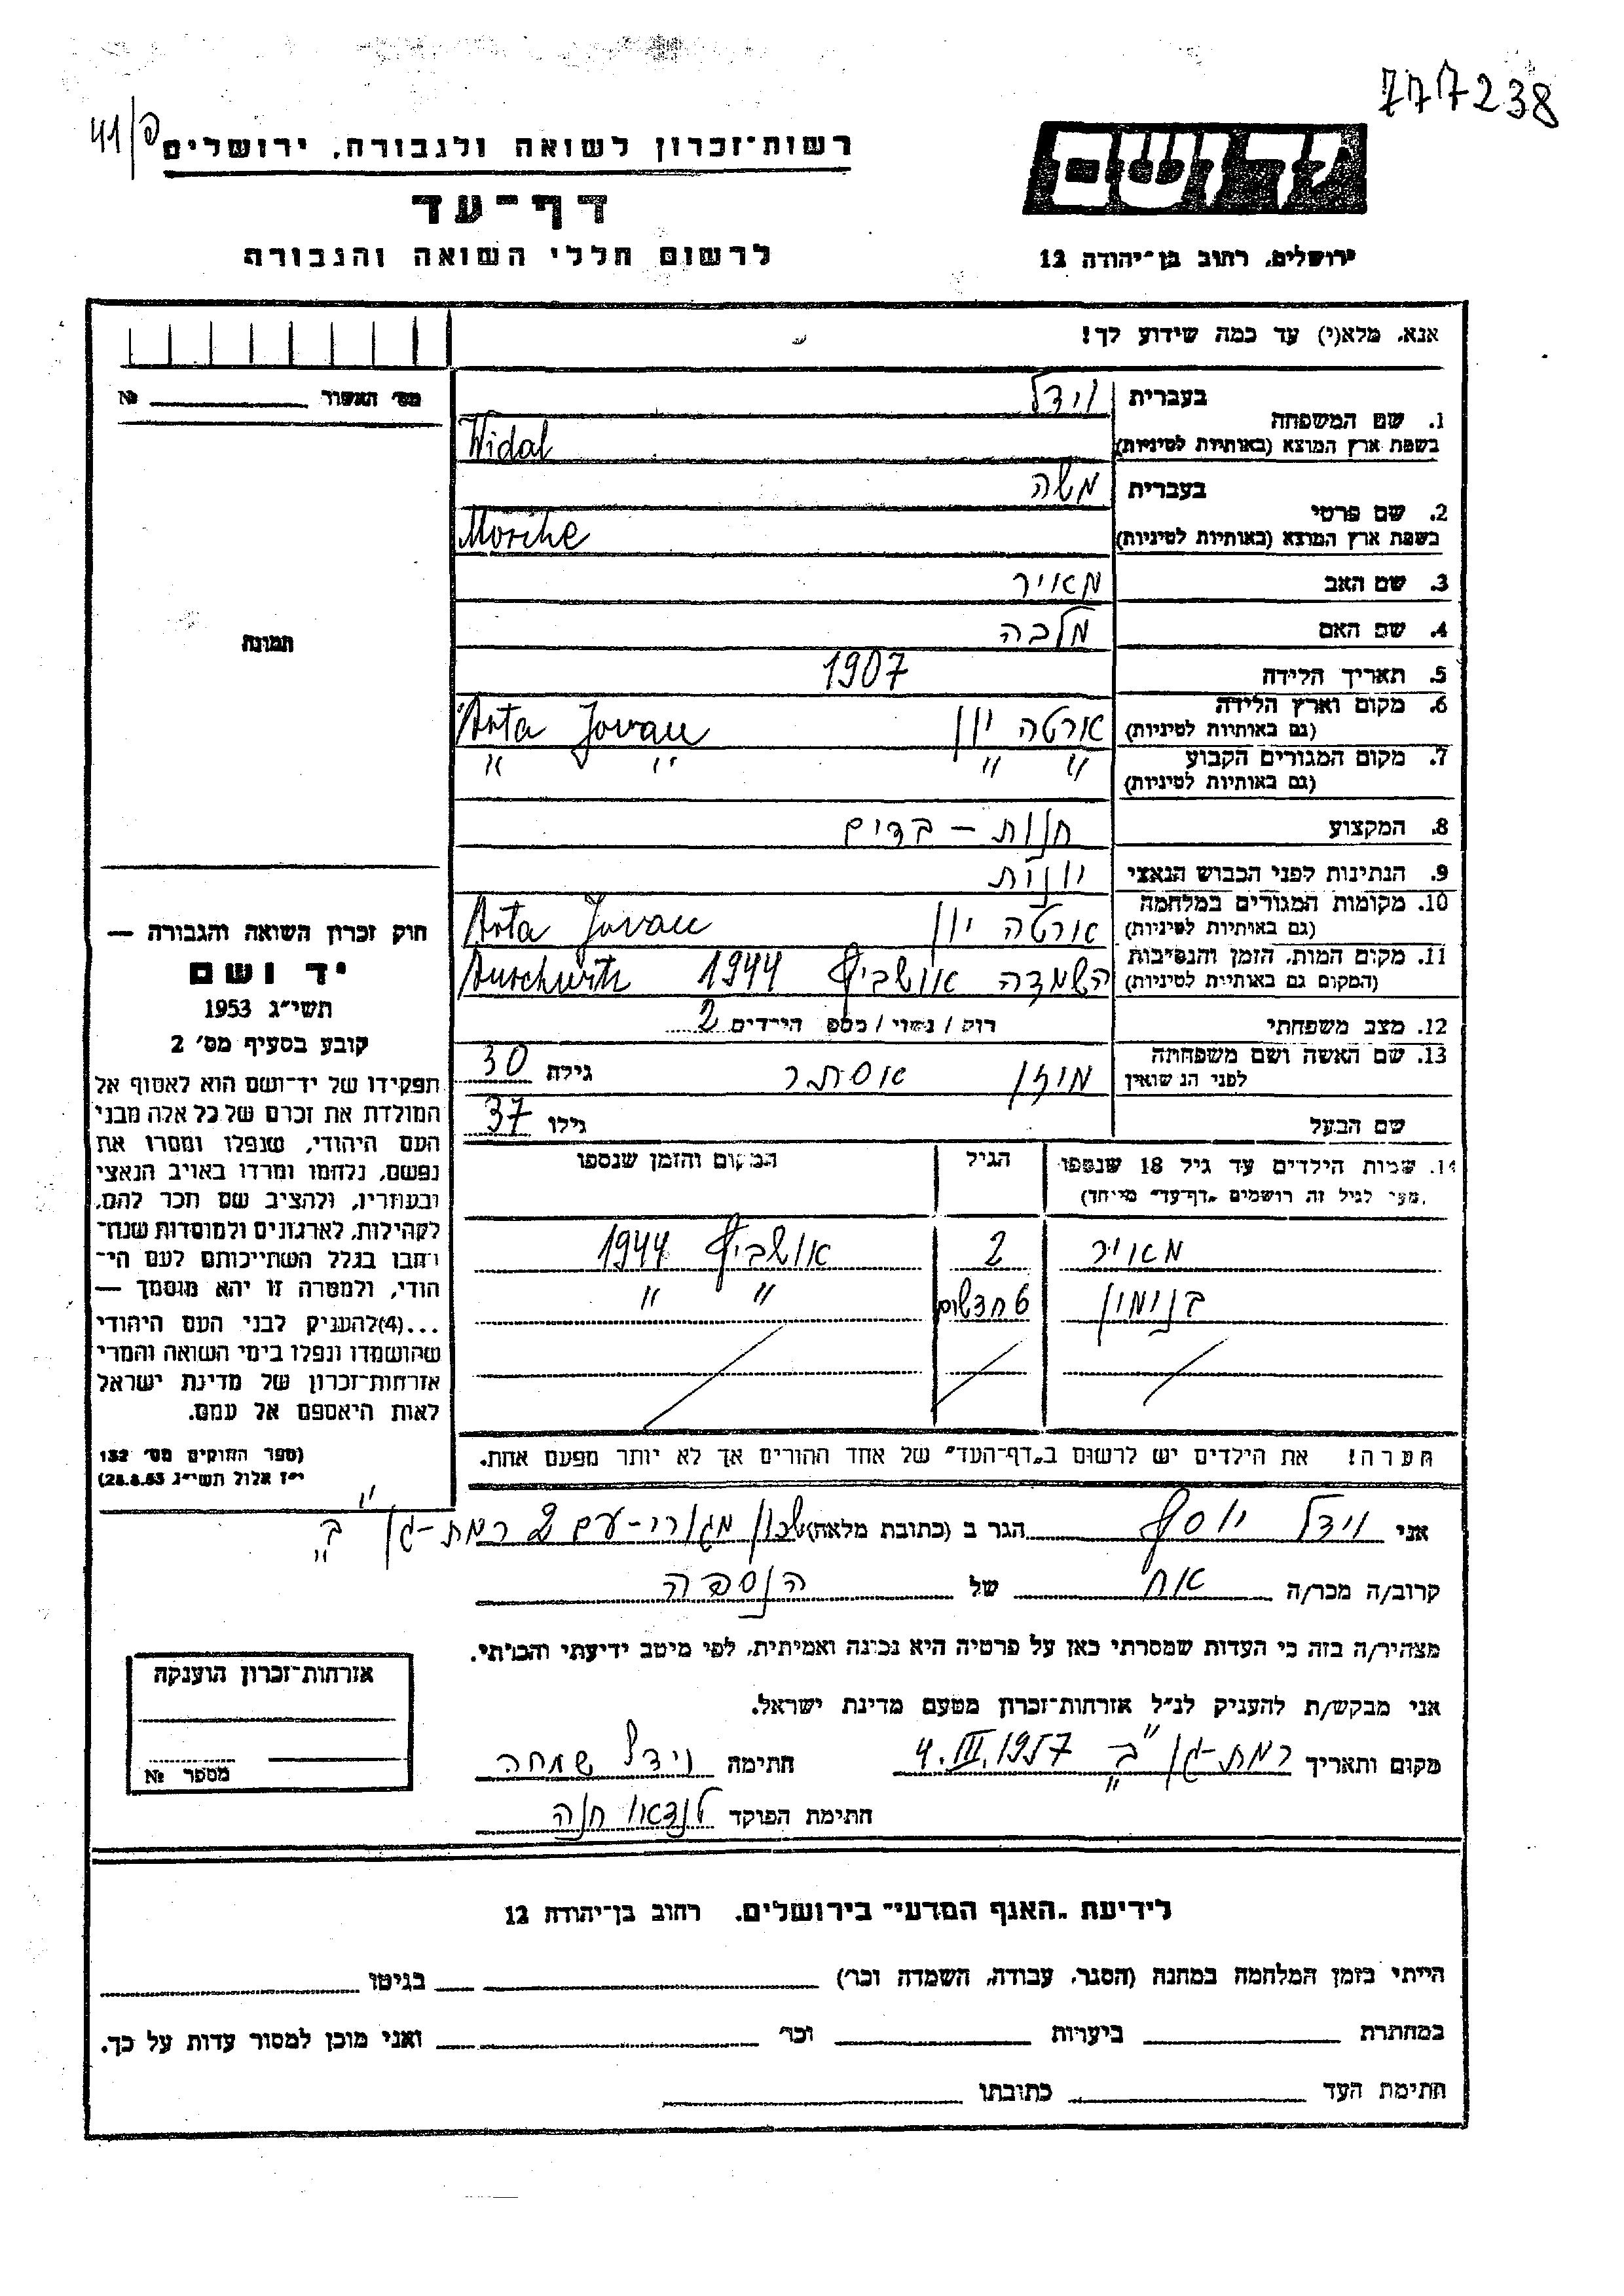 777238
41/פ
רשות־זכרון לשואה ולגבורה, ירושלים
דף־עד
לרשום חללי השואה והגבורה
יד ושם
ירושלים, רחוב בן־יהודה 12
אנא, מלא(י) עד כמה שידוע לך!
מס׳ האשור № 
1. שם המשפחה
בעברית וידל
בשפת ארץ המוצא (באותיות לטיניות) Widal
2. שם פרטי
בעברית משה
בשפת ארץ המוצא (באותיות לטיניות) Morche
3. שם האב מאיר
4. שם האם מלכה
תמונה
5. תאריך הלידה 1907
6. מקום וארץ הלידה ארטה יון Arta Jovan
(גם באותיות לטיניות)
7. מקום המגורים הקבוע " " " "
(גם באותיות לטיניות)
8. המקצוע חנות - בדים
9. הנתינות לפני הכבוש הנאצי יונית
10. מקומות המגורים במלחמה ארטה יון Arta Jovan
(גם באותיות לטיניות)
11. מקום המות, הזמן והנסיבות השמדה אושביץ 1944 Auschwitz
(המקום גם באותיות לטיניות)
12. מצב משפחתי רוק / נשוי / מספ הילדים 2
13. שם האשה ושם משפחתה מוזן אסתר גילה 30
לפני הנשואין
שם הבעל גילו 37
14. שמות הילדים עד גיל 18 שנספו הגיל המקום והזמן שנספו
(מעל לגיל זה רושמים „דף־עד” מיוחד)
מאיר 2 אושביץ 1944
בנימין 6 חדשים " " "
הערה! את הילדים יש לרשום ב„דף־העד” של אחד ההורים אך לא יותר מפעם אחת.
חוק זכרון השואה והגבורה —
יד ושם
תשי״ג 1953
קובע בסעיף מס׳ 2
תפקידו של יד־ושם הוא לאסוף אל
המולדת את זכרם של כל אלה מבני
העם היהודי, שנפלו ומסרו את
נפשם, נלחמו ומרדו באויב הנאצי
ובעוזריו, ולהציב שם וזכר להם,
לקהילות, לארגונים ולמוסדות שנח־
רבו בגלל השתייכותם לעם הי־
הודי, ולמטרה זו יהא מוסמך —
...(4) להעניק לבני העם היהודי
שהושמדו ונפלו בימי השואה והמרי
אזרחות־זכרון של מדינת ישראל
לאות היאספם אל עמם.
(ספר החוקים מס׳ 132
י״ז אלול תשי״ג 28.8.53)
אני וידל יוסף הגר ב (כתובת מלאה) שכון מגורי-עם 2 רמת-גן "ב"
קרוב/ה מכר/ה אח של הנספה
מצהיר/ה בזה כי העדות שמסרתי כאן על פרטיה היא נכונה ואמיתית, לפי מיטב ידיעתי והכרתי.
אני מבקש/ת להעניק לנ״ל אזרחות־זכרון מטעם מדינת ישראל.
מקום ותאריך רמת-גן "ב" 4.III.1957 חתימה וידל שמחה
חתימת הפוקד לנדאו חנה
אזרחות־זכרון הוענקה
מספר №
לידיעת „האגף המדעי” בירושלים, רחוב בן־יהודה 12
הייתי בזמן המלחמה במחנה (הסגר, עבודה, השמדה וכר׳) בגיטו
במחתרת ביערות וכר׳ ואני מוכן למסור עדות על כך.
חתימת העד כתובתו